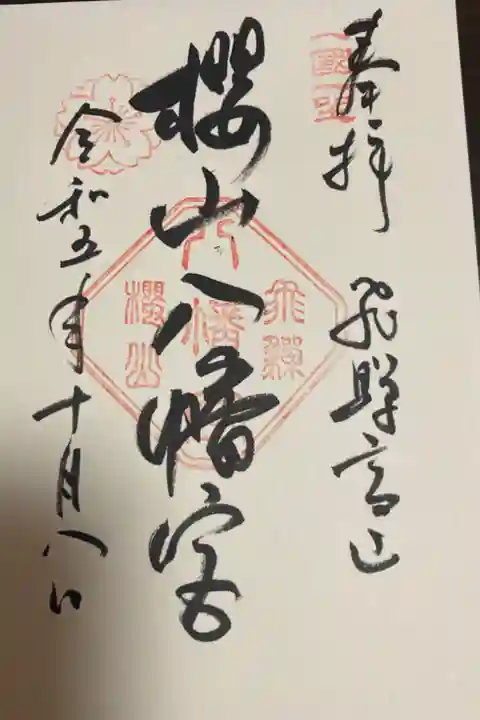 奉拝 飛騨高山
櫻山八幡宮
令和五年十月八日
飛騨
八幡
櫻山